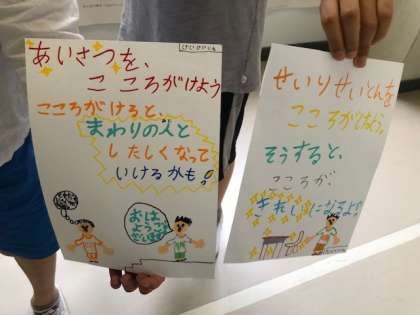 あいさつを、
こころがけよう
こころがけると、
まわりの人と
したしくなって
いけるかも!
おは
ようご
ざいます
せいりせいとんを
こころがけよう。
そうすると、
こころが、
きれいになるよ!